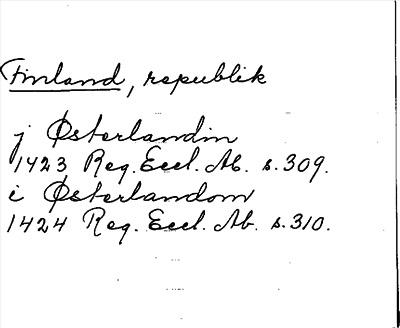 Finland, republik
j Østerlandin
1423 Reg. Eccl. Ab. s. 309.
i Østerlandom
1424 Reg. Eccl. Ab. s. 310.